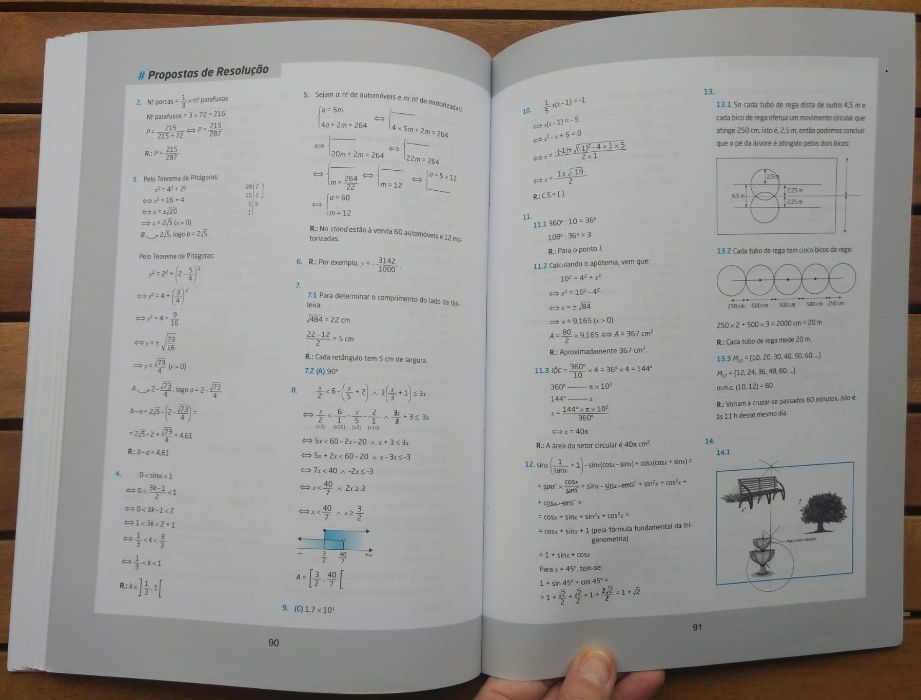 # Propostas de Resolução
2. Nº porcas = 1/3 × nº parafusos
Nº parafusos = 3 × 72 = 216
P = 215/(215 + 72) ⇔ P = 215/287
R.: P = 215/287
3. Pelo Teorema de Pitágoras:
⇔ x² = 16 + 4
⇔ x = ±√20
⇒ x = 2√5 (x > 0)
2√5, logo a = 2√5.
Pelo Teorema de Pitágoras:
⇔ y² = 4 + (3/4)²
⇔ y² = 4 + 9/16
⇔ y = ± √(73/16)
⇒ y = √73/4 (y > 0)
A 2 − √73/4, logo a = 2 − √73/4
b − a = 2√5 − (2 − √73/4) =
= 2√5 − 2 + √73/4 ≈ 4,61
R.: b − a ≈ 4,61
4. 0 < sinα < 1
⇔ 0 < (3k − 1)/2 < 1
⇔ 0 < 3k − 1 < 2
⇔ 1 < 3k < 2 + 1
⇔ 1/3 < k < 3/3
⇔ 1/3 < k < 1
R.: k ∈ ]1/3, 1[
5. Sejam a nº de automóveis e m nº de motorizadas:
{a = 5m
{4a + 2m = 264 ⇔ {4 × 5m + 2m = 264
⇔ {20m + 2m = 264 ⇔ {22m = 264
⇔ {m = 264/22 ⇔ {m = 12 ⇔ {a = 5 × 12
⇔ {a = 60
{m = 12
R.: No stand estão à venda 60 automóveis e 12 motorizadas.
6. R.: Por exemplo, y = 3142/1000.
7.
7.1 Para determinar o comprimento do lado da tijoleira:
√484 = 22 cm
(22 − 12)/2 = 5 cm
R.: Cada retângulo tem 5 cm de largura.
7.2 (A) 90°
8. x/2 < 6 − (x/5 + 2) ∧ 3(x/3 + 1) ≤ 3x
⇔ x/2 < 6/1 − x/5 − 2/1 ∧ 3x/3 + 3 ≤ 3x
(×5) (×10) (×2) (×10)
⇔ 5x < 60 − 2x − 20 ∧ x + 3 ≤ 3x
⇔ 5x + 2x < 60 − 20 ∧ x − 3x ≤ −3
⇔ 7x < 40 ∧ −2x ≤ −3
⇔ x < 40/7 ∧ 2x ≥ 3
⇔ x < 40/7 ∧ x ≥ 3/2
−∞ 3/2 40/7 +∞
A = [3/2, 40/7[
9. (C) 1,7 × 10¹
90
10. 1/5 x(x − 1) = −1
⇔ x(x − 1) = −5
⇔ x² − x + 5 = 0
⇔ x = (−(−1) ± √((−1)² − 4 × 1 × 5))/(2 × 1)
⇔ x = (1 ± √−19)/2
R.: C.S. = { }
11.
11.1 360° : 10 = 36°
108° : 36° = 3
R.: Para o ponto I.
11.2 Calculando o apótema, vem que:
10² = 4² + x²
⇔ x² = 10² − 4²
⇔ x = ± √84
⇒ x ≈ 9,165 (x > 0)
A = 80/2 × 9,165 ⇔ A ≈ 367 cm²
R.: Aproximadamente 367 cm².
11.3 IÔC = 360°/10 × 4 = 36° × 4 = 144°
360° ——— π × 10²
144° ——— x
x = (144° × π × 10²)/360°
⇔ x = 40π
R.: A área do setor circular é 40π cm².
12. sinx (1/tanx + 1) − sinx(cosx − sinx) + cosx(cosx + sinx) =
= sinx × cosx/sinx + sinx − sinx cosx + sin²x + cos²x +
+ cosx sinx =
= cosx + sinx + sin²x + cos²x =
= cosx + sinx + 1 (pela fórmula fundamental da trigonometria)
= 1 + sinx + cosx
Para x = 45°, tem-se:
1 + sin 45° + cos 45° =
= 1 + √2/2 + √2/2 = 1 + 2√2/2 = 1 + √2
13.
13.1 Se cada tubo de rega dista de outro 4,5 m e
cada bico de rega efetua um movimento circular que
atinge 250 cm, isto é, 2,5 m, então podemos concluir
que o pé da árvore é atingido pelos dois bicos:
2,5 m
4,5 m
2,25 m
2,25 m
13.2 Cada tubo de rega tem cinco bicos de rega:
250 cm 500 cm 500 cm 500 cm 250 cm
250 × 2 + 500 × 3 = 2000 cm = 20 m
R.: Cada tubo de rega mede 20 m.
13.3 M₁₀ = {10, 20, 30, 40, 50, 60, ...}
M₁₂ = {12, 24, 36, 48, 60, ...}
m.m.c. (10, 12) = 60
R.: Voltam a cruzar-se passados 60 minutos, isto é,
às 11 h desse mesmo dia.
14.
14.1
91